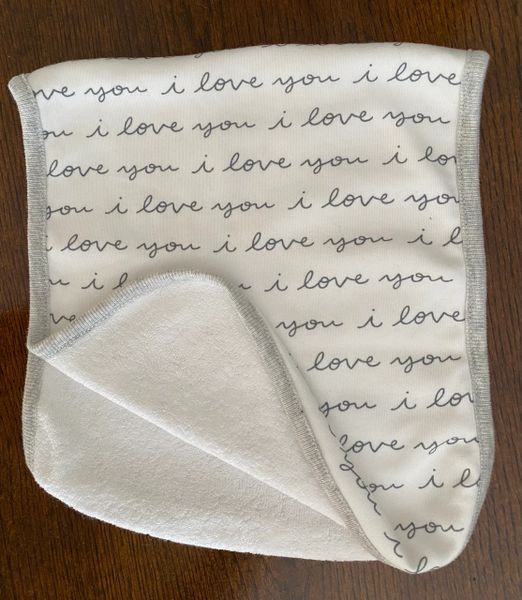 ove you i love you i love
ou i love you i love you
love you i love you i lo
you i love you i love yo
love you i love you i l
u i l i love you
ve you i love
love you
you i lo
love you
you i l
you